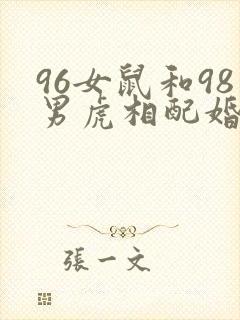 96女鼠和98
男虎相配婚
張一文